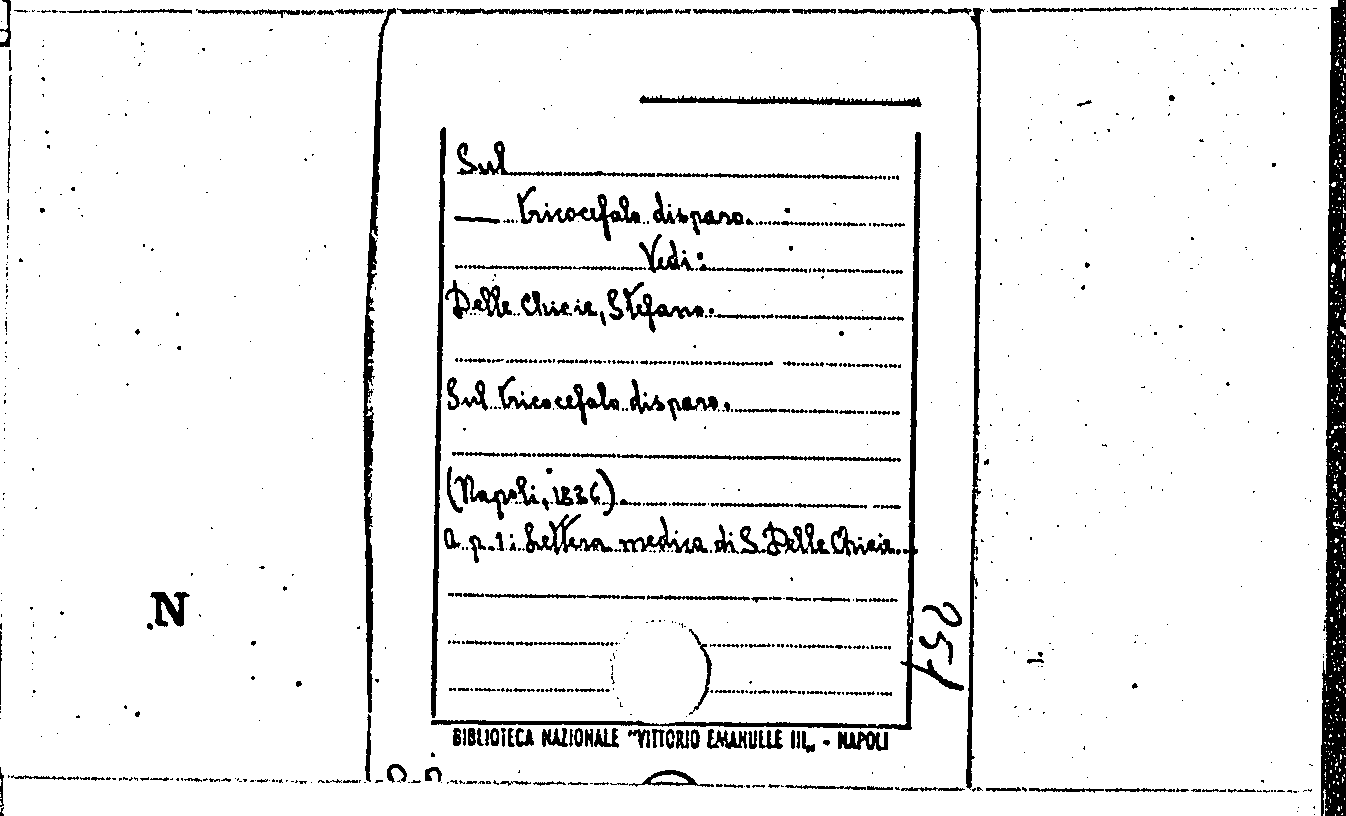 Sul
— Tricocefalo disparo.
Vedi:
Delle Chiaie, Stefano.
Sul Tricocefalo disparo.
(Napoli, 1836).
a p. 1: Lettera medica di S. Delle Chiaie.
251
N
BIBLIOTECA NAZIONALE "VITTORIO EMANUELE III„ - NAPOLI